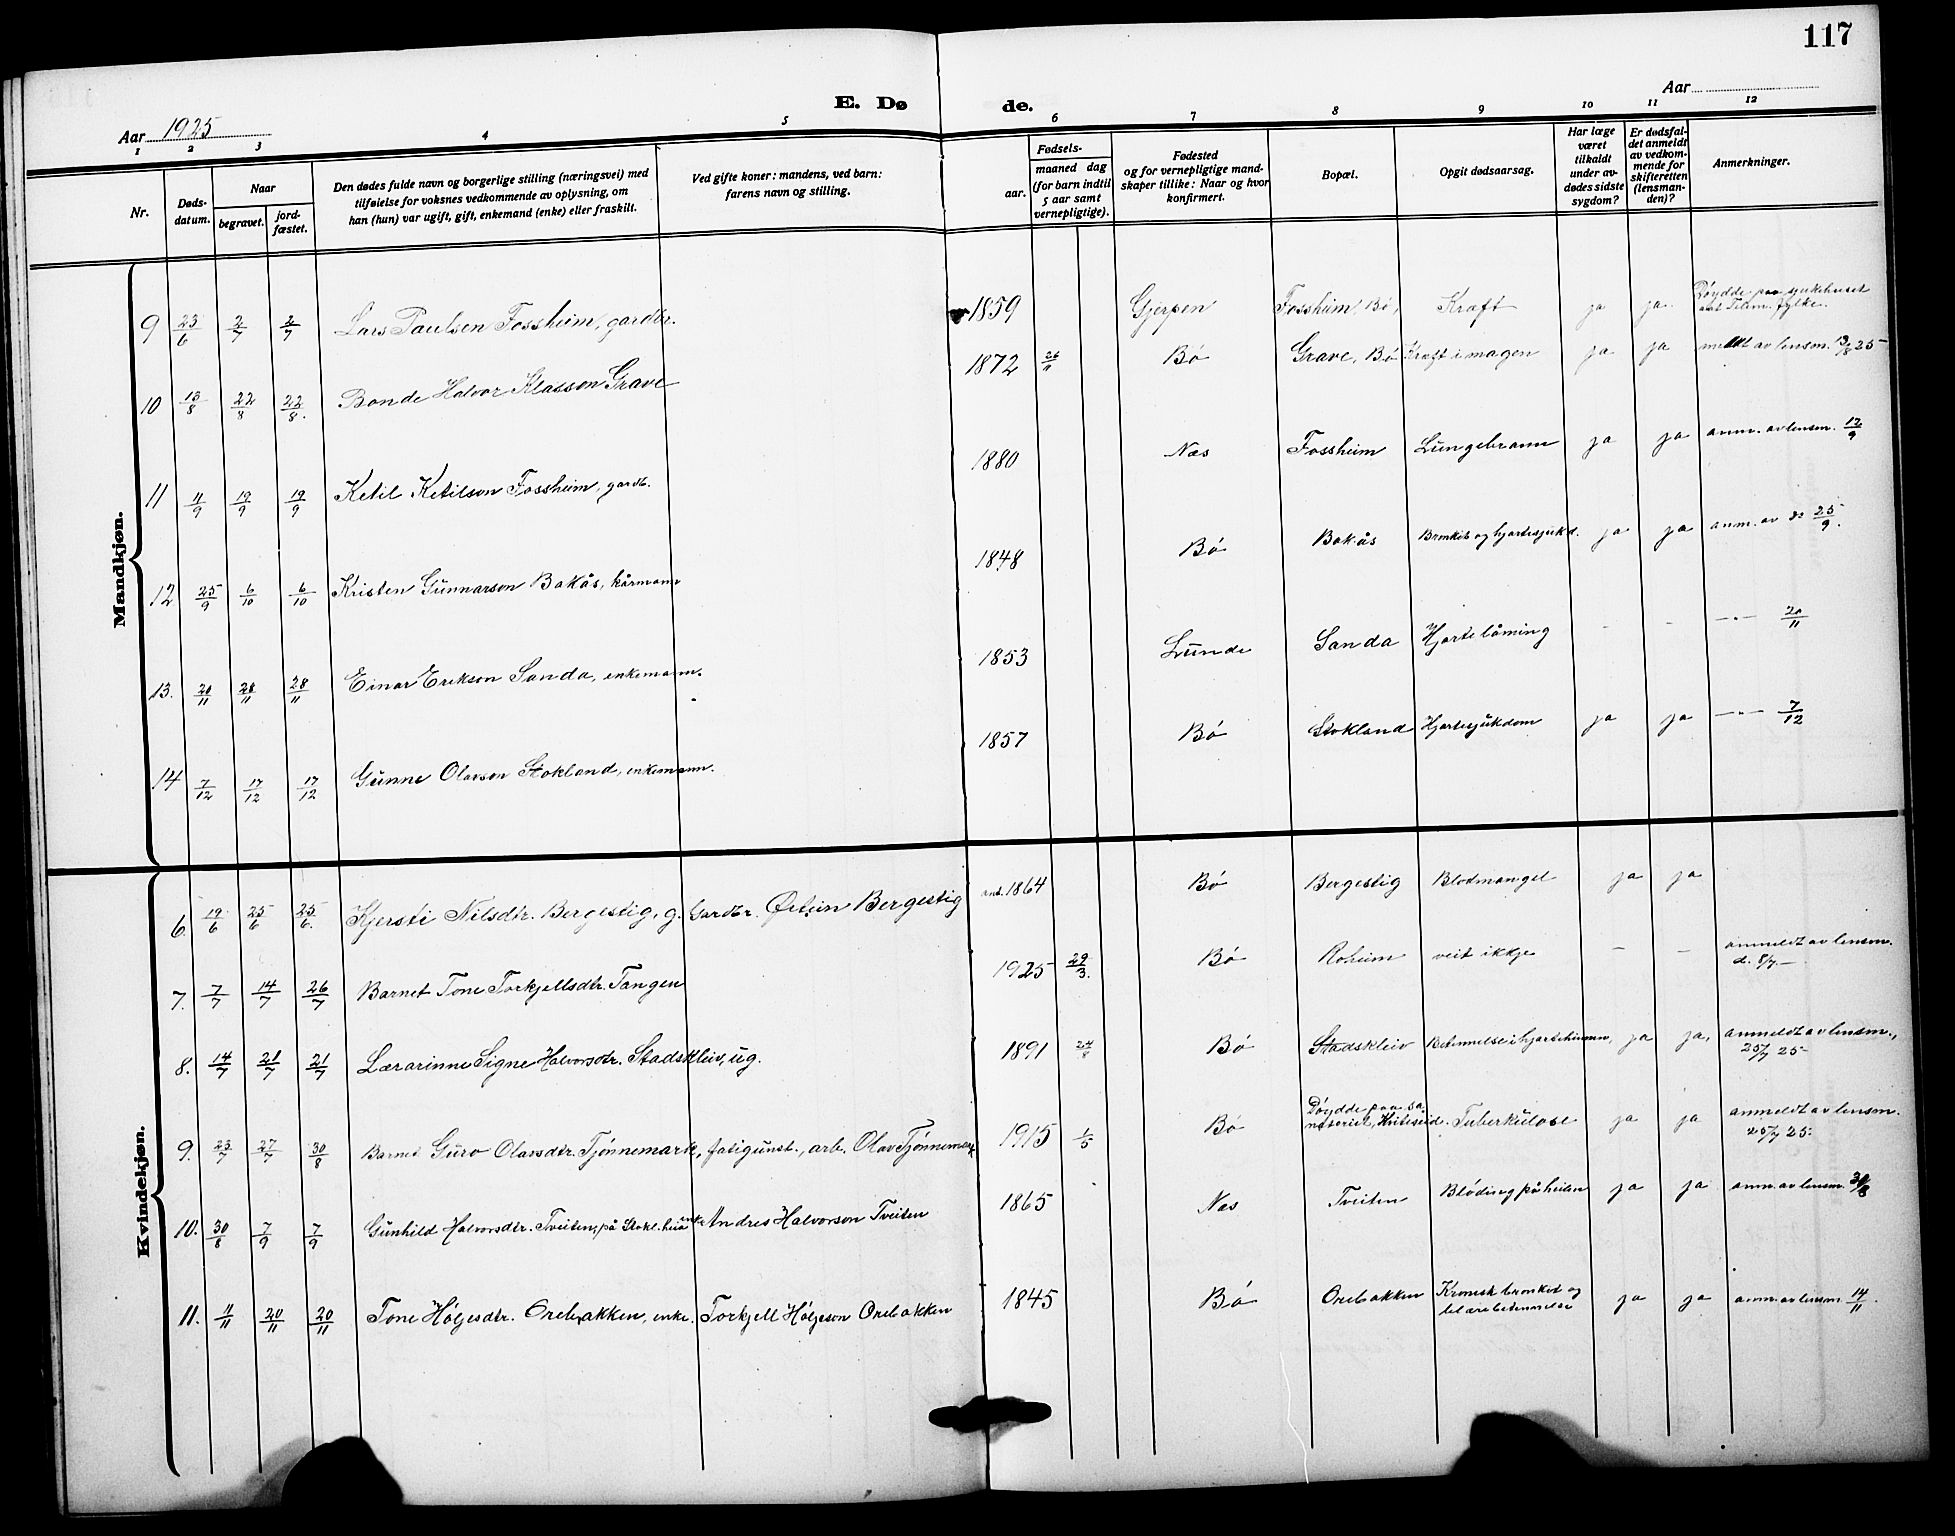 117
E. Døde.
Aar 1925
Aar
1 2 3 4 5 6 7 8 9 10 11 12
Nr.
Døds-datum.
Naar
begravet.
jord-fæstet.
Den dødes fulde navn og borgerlige stilling (næringsvei) med
tilføielse for voksnes vedkommende av oplysning, om
han (hun) var ugift, gift, enkemand (enke) eller fraskilt.
Ved gifte koner: mandens, ved barn:
farens navn og stilling.
Fødsels-
aar.
maaned dag
(for barn indtil
5 aar samt
vernepligtige).
Fødested
og for vernepligtige mand-
skaper tillike: Naar og hvor
konfirmert.
Bopæl.
Opgit dødsaarsag.
Har læge
været
tilkaldt
under av-
dødes sidste
sygdom?
Er dødsfal-
det anmeldt
av vedkom-
mende for
skifteretten
(lensman-
den)?
Anmerkninger.
Mandkjøn.
9 23/6 2/7 2/7 Lars Paulsen Fossheim, gardbr. 1859 Gjerpen Fossheim, Bø, Kræft ja ja. Døydde paa sjukehuset
Telem. fylke.
10 13/8 22/8 22/8. Bonde Halvor Klasson Grave 1872 26/11 Bø Grave, Bø Kræft i magen ja ja meldt av lensm. 13/8 25
11 11/9 19/9 19/9 Ketil Ketilson Fossheim, gardb. 1880 Nes Fossheim Lungebrann ja ja anm. av lensm. 12/9
12 25/9 6/10 6/10 Kristen Gunnarson Bakås, kårmann 1848 Bø Bakås Bronkit og hjartesjukd. ja ja anm. av do 25/9.
13. 20/11 28/11 28/11 Einar Erikson Sanda, enkemann. 1853 Lunde Sanda Hjartelåming - - —"— 20/11
14 7/12 17/12 17/12 Gunne Olavson Stokland, enkemann. 1857 Bø Stokland Hjartesjukdom ja ja —"— 7/12
Kvindekjøn.
6. 19/6 25/6 25/6. Kjersti Nilsdtr. Bergestig, g. Gardbr. Østein Bergestig 1864 Bø Bergestig Blodmangel ja ja
7. 7/7 14/7 26/7 Barnet Tone Torkjellsdtr. Tangen 1925 29/3. Bø Roheim veit ikkje - - anmeldt av lensm.
d. 8/7. —
8. 14/7 21/7 21/7 Lærarinne Signe Halvorsdtr. Stadskleiv, ug. 1891 24/8 Bø Stadskleiv Betennelse i hjartehinnen, ja ja, anmeldt av lensm.,
25/7 25
9. 23/7 27/7 30/8 Barnet Guro Olavsdtr. Tjønnemark, fatigunst., arb. Olav Tjønnemark 1915 1/5 Bø Døydde paa sa-
natoriet, Kviteseid. Tuberkulose ja ja anmeldt av lensm.
25/7 25.
10. 30/8 7/9 7/9 Gunhild Halvorsdtr. Tveiten, på Stokl.heia enke Andres Halvorson Tveiten 1865 Nes Tveiten Bløding på heilen ja ja anm. av lensm. 30/8
11. 11/11 20/11 20/11 Tone Høljesdtr. Orebakken, enke. Torkjell Høljeson Orebakken 1845 Bø Orebakken Kronisk bronkit og
blærebetennelse ja ja anm. av lensm. 14/11.